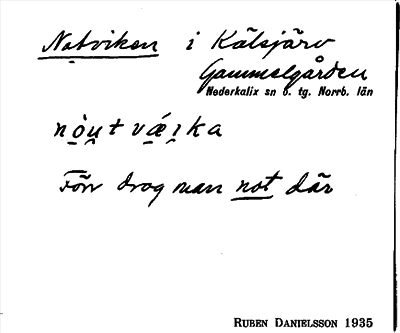 Notviken i Kälsjärv
Gammelgården
Nederkalix sn o. tg. Norrb. län
nò̱u̯t vǽi̯ka
Förr drog man not där
RUBEN DANIELSSON 1935